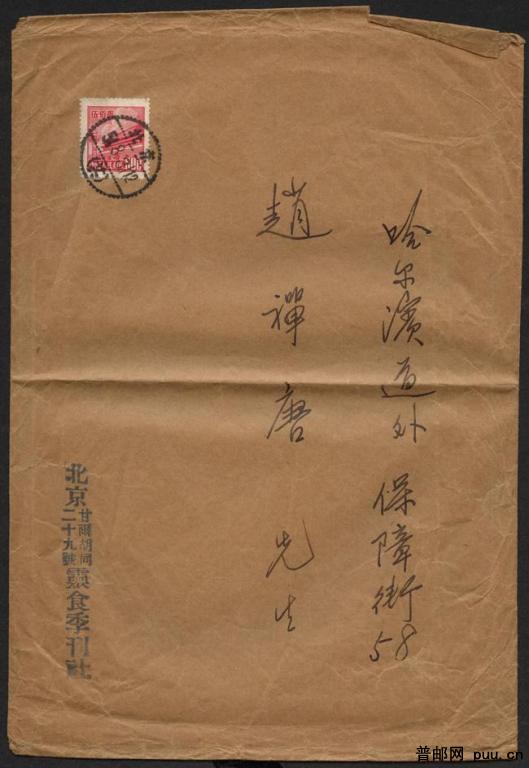 哈尔濱道外保障街58
趙禪唐先生
北京
甘雨胡同
二十九號
食季刊社
普邮网 puu.cn